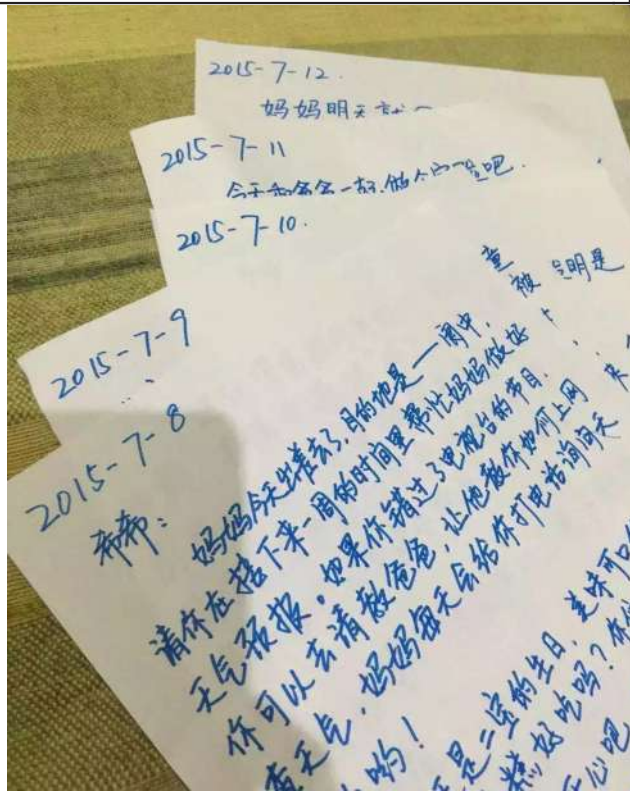 2015-7-12.
妈妈明天
2015-7-11
今天和爷爷一起,做个
吧.
2015-7-10.
2015-7-9
2015-7-8
希希:
妈妈今天出差去了,目的地是——阆中,
请你在接下来一周的时间里帮忙妈妈做好
天气预报。如果你错过了电视台的节目,
你可以去请教爸爸,让他教你如何上网
查天气,妈妈每天会给你打电话询问天
哟!
是二宝的生日,美味可口
糕好吃吗?你
开心吧
童
被
明是
来